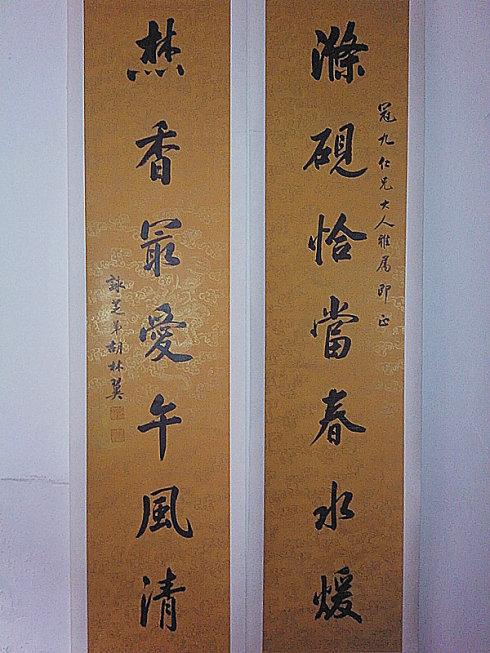 滌硯恰當春水煖
冠九仁兄大人雅屬即正
焚香最愛午風清
詠芝弟胡林翼